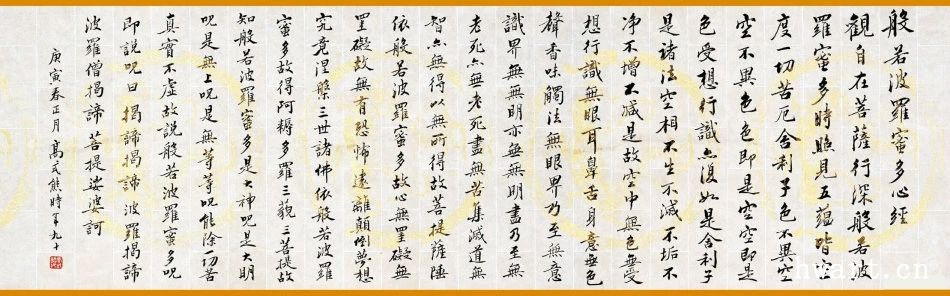 般若波羅蜜多心經
觀自在菩薩行深般若波
羅蜜多時照見五蘊皆空
度一切苦厄舍利子色不異空
空不異色色即是空空即是
色受想行識亦復如是舍利子
是諸法空相不生不滅不垢不
净不增不減是故空中無色無受
想行識無眼耳鼻舌身意無色
聲香味觸法無眼界乃至無意
識界無無明亦無無明盡乃至無
老死亦無老死盡無苦集滅道無
智亦無得以無所得故菩提薩埵
依般若波羅蜜多故心無罣礙無
罣礙故無有恐怖遠離顛倒夢想
究竟涅槃三世諸佛依般若波羅
蜜多故得阿耨多羅三藐三菩提故
知般若波羅蜜多是大神呪是大明
呪是無上呪是無等等呪能除一切苦
真實不虛故說般若波羅蜜多呪
即說呪曰揭諦揭諦 波羅揭諦
波羅僧揭諦 菩提娑婆訶
庚寅春正月高式熊時年九十